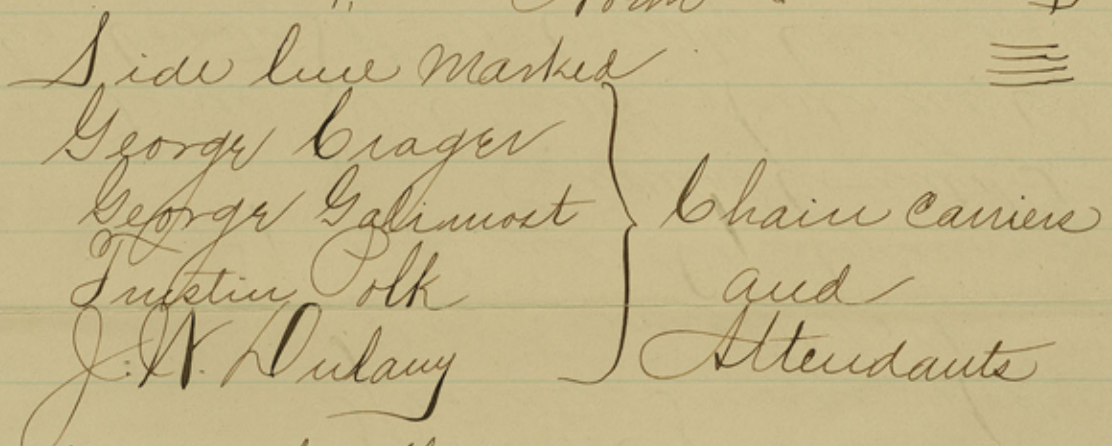 Side line Marked
George Crager
George Galimost
Trustin Polk
J. W. Dulany
Chain carriers
and
Attendants